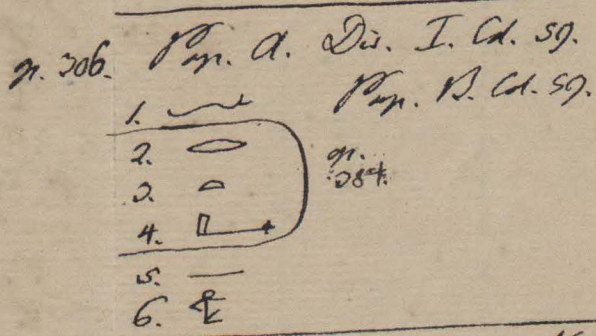 n. 306. Pap. A. Div. I. Col. 59.
Pap. B. Col. 59.
1.
2.
n. 384.
3.
4.
5.
6.